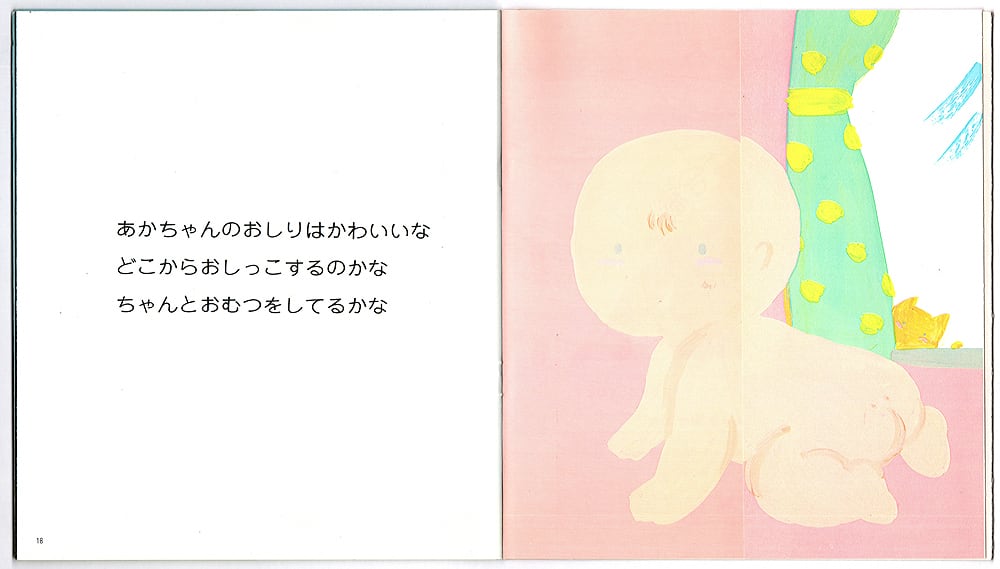 あかちゃんのおしりはかわいいな
どこからおしっこするのかな
ちゃんとおむつをしてるかな
18